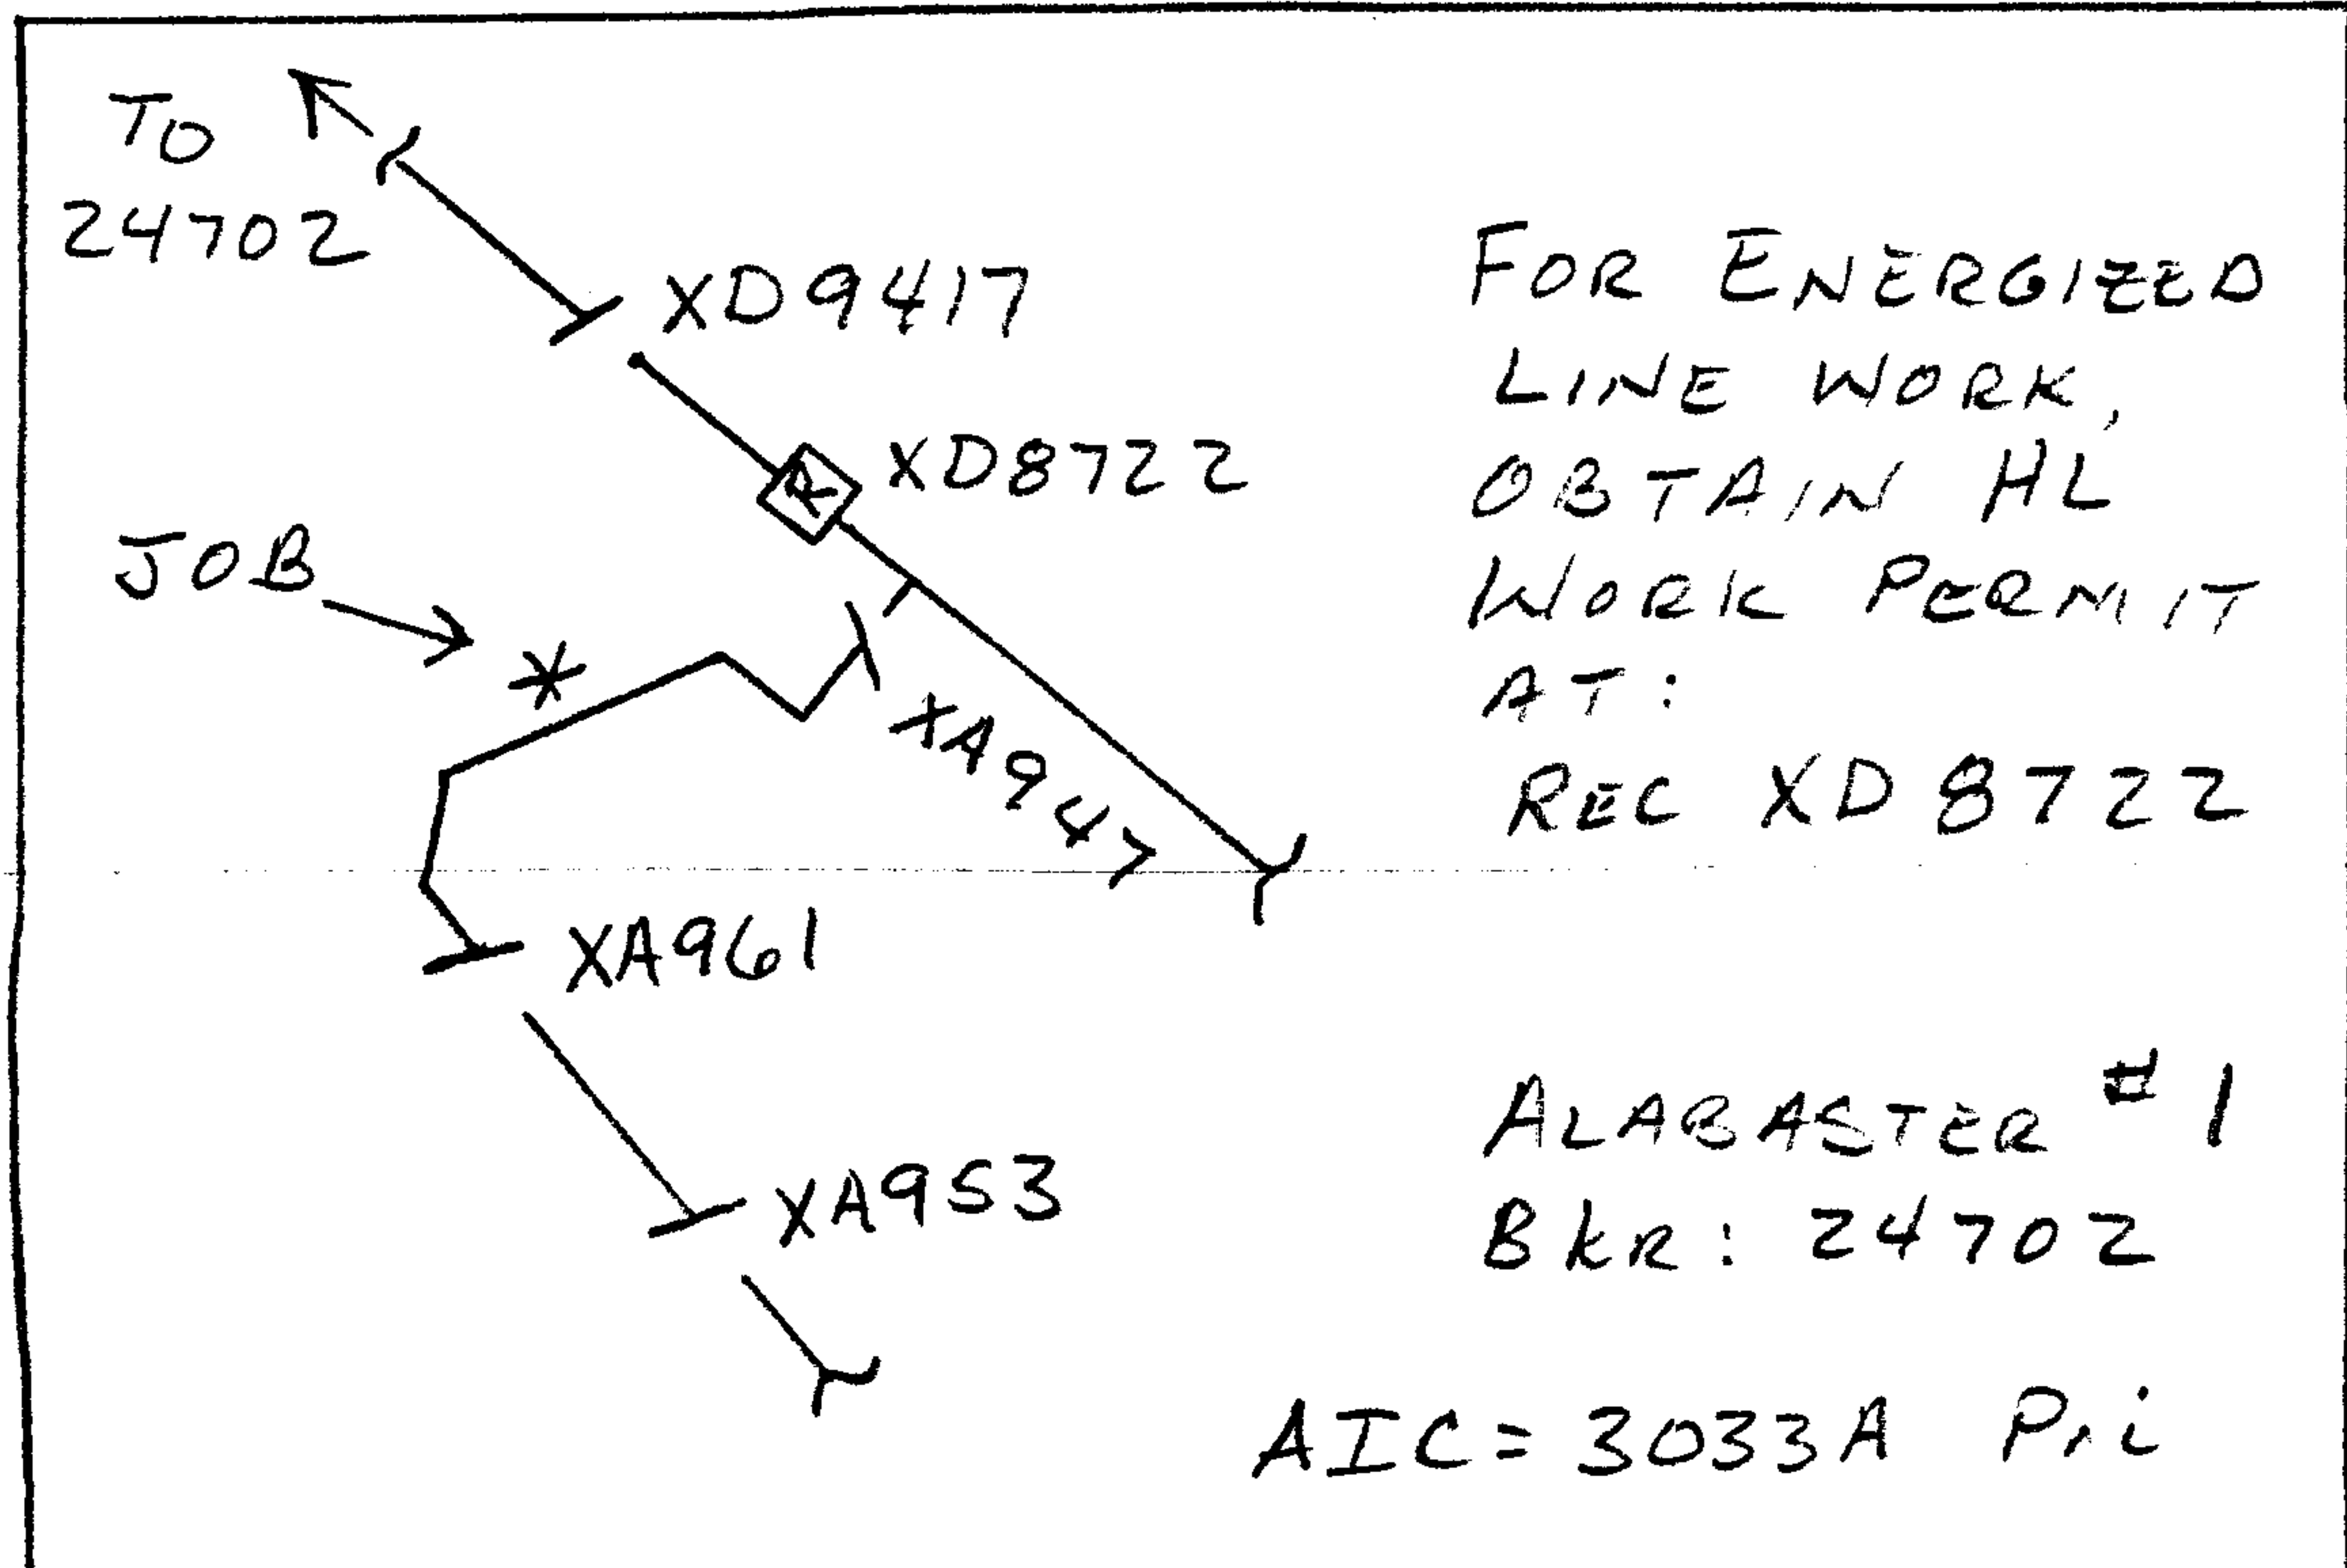 TO
24702
XD9417
R XD8722
JOB
*
XA947
XA961
XA953
FOR ENERGIZED
LINE WORK,
OBTAIN HL
WORK PERMIT
AT:
REC XD8722
ALABASTER #1
BKR: 24702
AIC = 3033A Pri